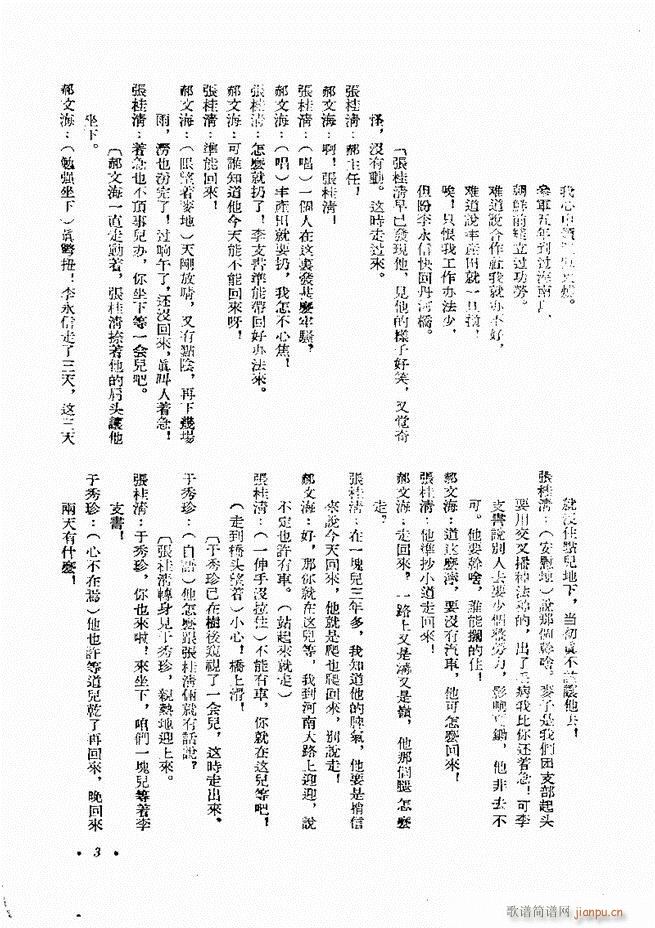 參軍五年到过海南島，
朝鮮前綫立过功劳。
难道說合作社我就办不好，
难道說丰產田就一旦扔！
唉，只恨我工作办法少，
但盼李永信快回丹河橋。
〔張桂淸早已發現他，見他的樣子好笑，又覚奇
怪，沒有動。这時走过來。
張桂淸：郝主任！
郝文海：啊！張桂淸！
張桂淸：（唱）一個人在这裏發甚麼牢騷，
郝文海：（唱）丰產田就要扔，我怎不心焦！
張桂淸：怎麼就扔了！李支書準能帶回好办法來。
郝文海：可誰知道他今天能不能回來呀！
張桂淸：準能回來！
郝文海：（眼望着麥地）天剛放晴，又有點陰，再下幾場
雨，澇也澇完了！过晌午了，还沒回來，眞叫人着急！
張桂淸：着急也不頂事兒办，你坐下等一会兒吧。
〔郝文海一直走動着，張桂淸捺着他的肩头讓他
坐下。
郝文海：（勉强坐下）眞彆扭！李永信走了三天，这三天
就沒住點兒地下，当初眞不該讓他去！
張桂淸：（安慰地）說那個幹啥。麥子是我們团支部起头
要用交叉播种法种的，出了毛病我比你还着急！可李
支書說別人去要少個整劳力，影响鏟鋤，他非去不
可。他要幹啥，誰能攔的住！
郝文海：道这麼濘，要沒有汽車，他可怎麼回來！
張桂淸：他準抄小道走回來！
郝文海：走回來？一路上又是溝又是嶺，他那個腿怎麼
走，
張桂淸：在一塊兒三年多，我知道他的脾氣，他要是捎信
來說今天回來，他就是爬也爬回來，別說走！
郝文海：好，那你就在这兒等，我到河南大路上迎迎，說
不定也許有車。（站起來就走）
張桂淸：（一伸手沒拉住）不能有車，你就在这兒等吧！
（走到橋头望着）小心！橋上滑！
〔于秀珍已在樹後窺視了一会兒，这時走出來，
于秀珍：（自語）他怎麼跟張桂淸倆就有話說？
〔張桂淸轉身見于秀珍，親熱地迎上來。
張桂淸：于秀珍，你也來啦！來坐下，咱們一塊兒等着李
支書！
于秀珍：（心不在焉）他也許等道兒乾了再回來，晚回來
兩天有什麼！
• 3 •
歌谱简谱网 jianpu.cn